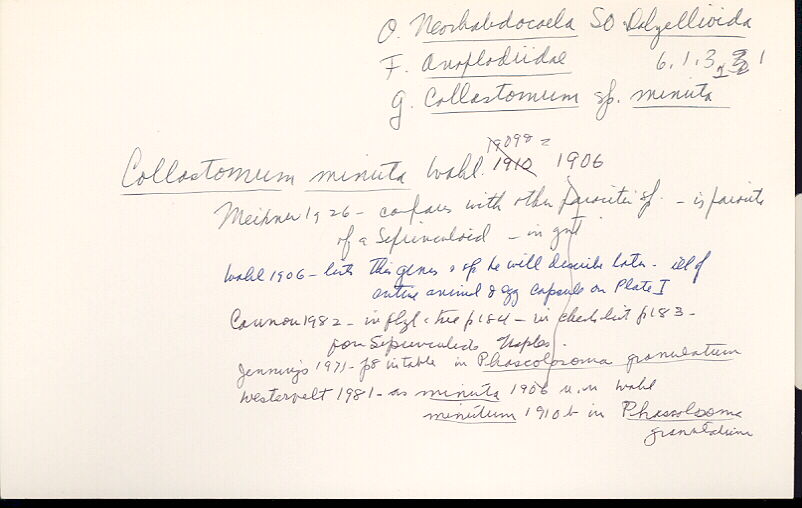 O. Neorhabdocoela SO. Dalyellioida
F. Anoplodiidae 6.1.3.1
G. Collastomum sp. minuta
1909 =
Collastomum minuta Wahl. 1910 1906
Meixner 1926 - compares with other parasitic sp. - is parasite
of a Sipunculoid - in gut
Wahl 1906 - lists this genus & sp he will describe later. ill of
entire animal & egg capsule on Plate I
Cannon 1982 - in phyl. tree p184 - in checklist p183 -
from Sipunculids Naples.
Jennings 1971 - p8 in table in Phascolosoma granulatum
Westervelt 1981 - as minuta 1906 n.n Wahl
minutum 1910b in Phascolosoma
granulatum